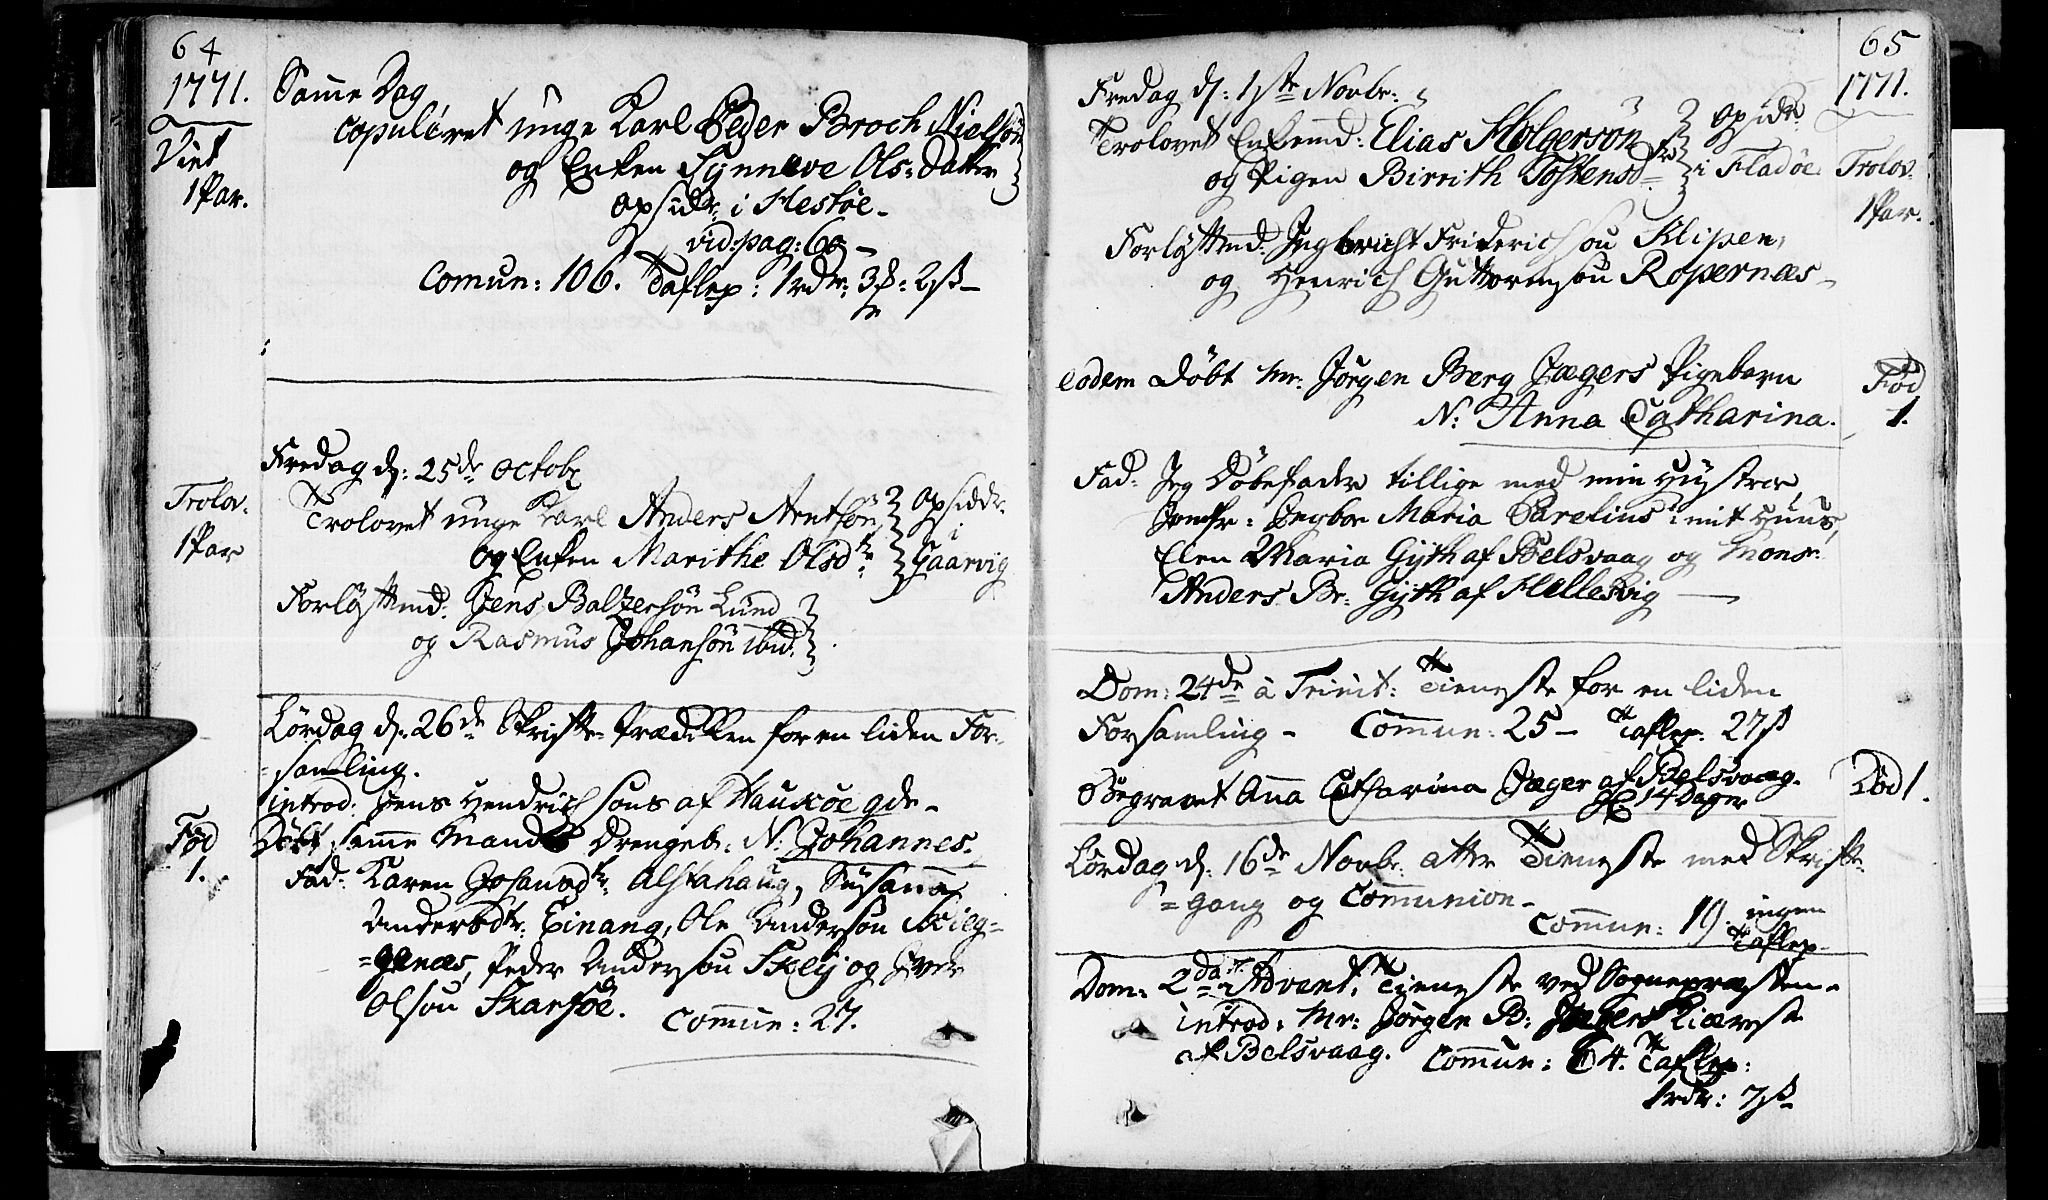 64
1771.
Viet
1 Par.
Samme Dag
copuleret unge Karl Peder Broch Nielssøn
og Enken Synneve Ols: Datter
opsidr: i Hestøe.
vid: pag: 60 –
Comun: 106. Tafлep: 1 rdr: 3 : 2 ß –
Fredag d: 25de Octobr
Trolov.
1 Par
Trolovet unge Karl Anders Arntsøn
og Enken Marithe Olsdtr:
Opsiddr:
i
Gaarvig
Forløftmd: Jens Baltzersøn Lund
og Rasmus Johansøn ibid.
Lørdag d: 26de Skrifte-Prædiken for en liden For-
=samling.
introd: Jens Hendrichsons af Hauxøe qde –
Fød
1.
Døbt samme Mands Drengeb: N: Johannes.
Fad: Karen Johansdtr: Alstahaug, Susanna
Andersdtr: Einang, Ole Andersøn Skieg-
=genæs, Peder Andersøn Skeij og Iver
Olsøn Skarsøe.
Comun: 27.
65
1771.
Fredag d: 1ste Novbr:
Trolovet Enkemd: Elias Holgersøn
og Pigen Birrith Tostensdtr
opsidr:
i Fladøe
Trolov:
1 Par.
Forløftmd: Ingbricht Friderichsøn Klipen,
og Henrich Guttormsøn Ropernæs –
eodem Døbt Mr: Jørgen Berg Jægers Pigebarn
N: Anna Catharina.
Fød
1.
Fad: Jeg Døbefader tillige med min Hustroe,
Jomfr: Ingbor Maria Parelius i mit Huus,
Elen Maria Gyth af Belsvaag og Mons:
Anders Br: Gyth af Hellesvig –
Dom: 24de à Trinit: Tieneste for en liden
Forsamling – Comun: 25 – Taflep: 27 ß
Begravet Ana Catharina Jæger af Belsvaag.
14 Dage
Død 1.
Lørdag d: 16de Novbr: atter Tieneste med Skrifte-
=gang og Communion –
Comun: 19. ingen
Taflep –
Dom: 2da Advent: Tieneste ved Sognepræsten –
introd: Mr: Jørgen B: Jægers Kiæreste
af Belsvaag. Comun: 64. Taflep:
1 rdr: 7 ß –